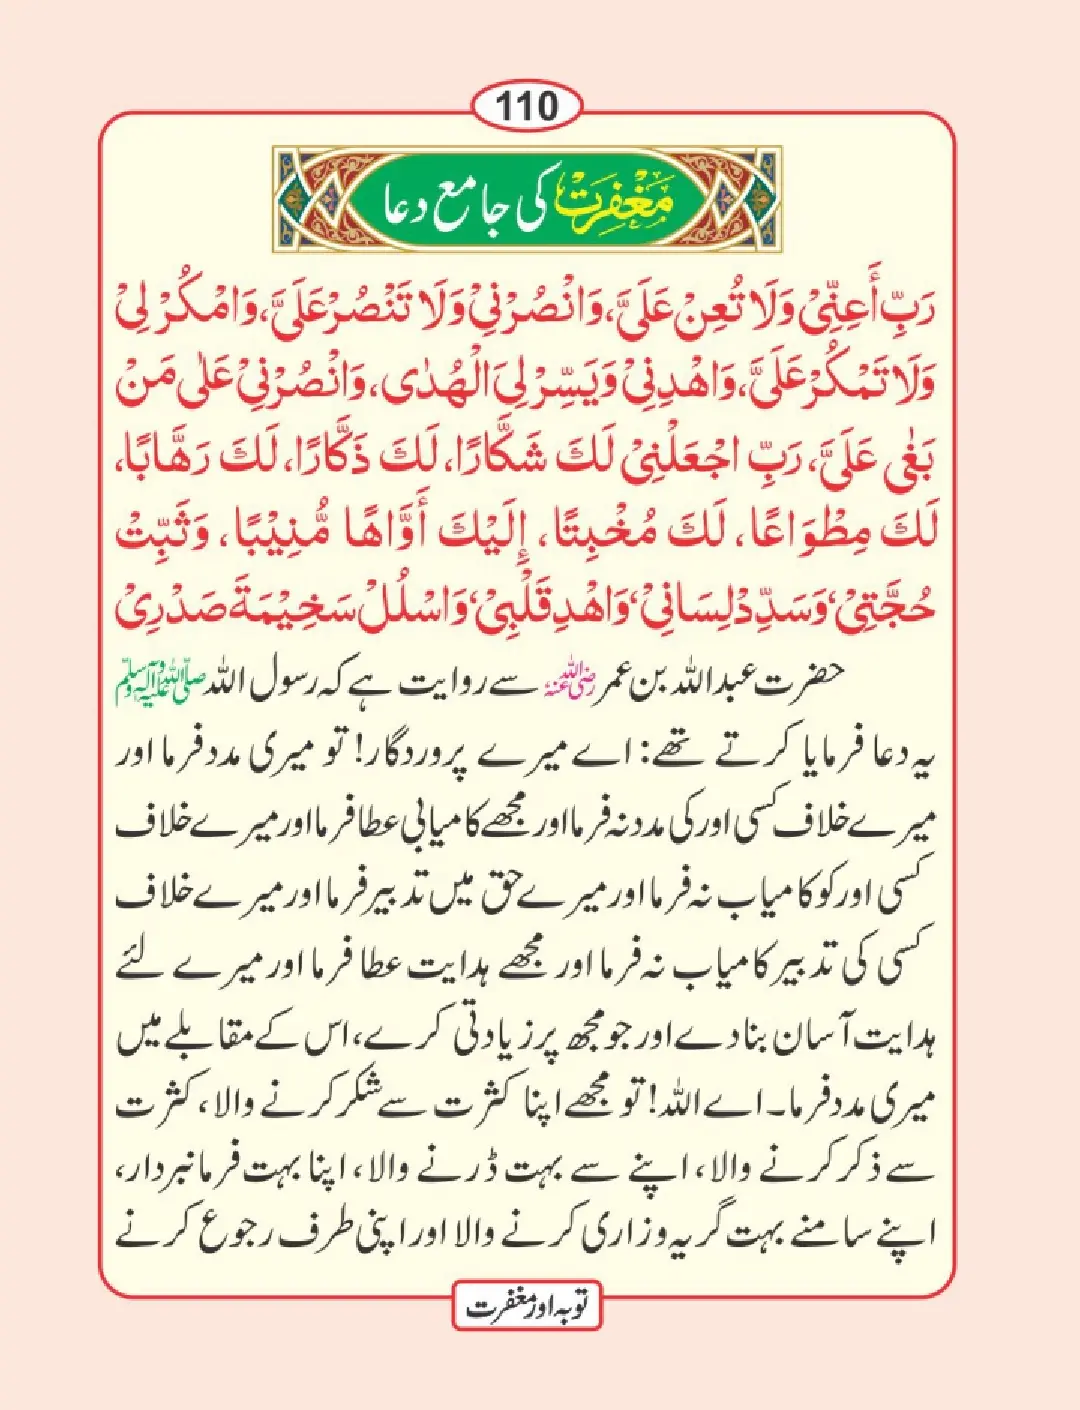 110
مغفرت کی جامع دعا
رَبِّ أَعِنِّيْ وَلَا تُعِنْ عَلَيَّ، وَانْصُرْنِيْ وَلَا تَنْصُرْ عَلَيَّ، وَامْكُرْ لِيْ
وَلَا تَمْكُرْ عَلَيَّ، وَاهْدِنِيْ وَيَسِّرْ لِيَ الْهُدٰى، وَانْصُرْنِيْ عَلٰى مَنْ
بَغٰى عَلَيَّ، رَبِّ اجْعَلْنِيْ لَكَ شَكَّارًا، لَكَ ذَكَّارًا، لَكَ رَهَّابًا،
لَكَ مِطْوَاعًا، لَكَ مُخْبِتًا، إِلَيْكَ أَوَّاهًا مُّنِيْبًا، وَثَبِّتْ
حُجَّتِيْ، وَسَدِّدْ لِسَانِيْ، وَاهْدِ قَلْبِيْ، وَاسْلُلْ سَخِيْمَةَ صَدْرِيْ
حضرت عبداللہ بن عمر رضی اللہ عنہ سے روایت ہے کہ رسول اللہ صلی اللہ علیہ وآلہ وسلم
یہ دعا فرمایا کرتے تھے: اے میرے پروردگار! تو میری مدد فرما اور
میرے خلاف کسی اور کی مدد نہ فرما اور مجھے کامیابی عطا فرما اور میرے خلاف
کسی اور کو کامیاب نہ فرما اور میرے حق میں تدبیر فرما اور میرے خلاف
کسی کی تدبیر کامیاب نہ فرما اور مجھے ہدایت عطا فرما اور میرے لئے
ہدایت آسان بنا دے اور جو مجھ پر زیادتی کرے، اس کے مقابلے میں
میری مدد فرما۔ اے اللہ! تو مجھے اپنا کثرت سے شکر کرنے والا، کثرت
سے ذکر کرنے والا، اپنے سے بہت ڈرنے والا، اپنا بہت فرمانبردار،
اپنے سامنے بہت گریہ وزاری کرنے والا اور اپنی طرف رجوع کرنے
توبہ اور مغفرت